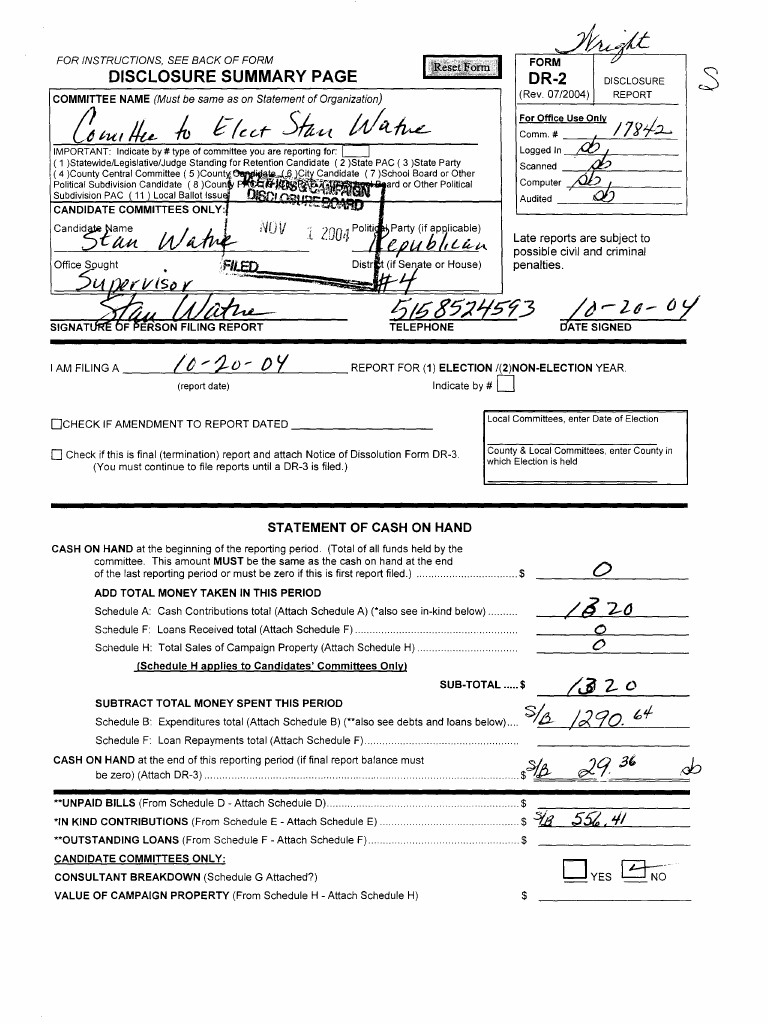 Wright
FOR INSTRUCTIONS, SEE BACK OF FORM
Reset Form
DISCLOSURE SUMMARY PAGE
FORM
DR-2
(Rev. 07/2004)
DISCLOSURE
REPORT
S
COMMITTEE NAME (Must be same as on Statement of Organization)
Committee to Elect Stan Watne
For Office Use Only
Comm. # 17842
Logged In db
Scanned db
Computer db
Audited db
IMPORTANT: Indicate by # type of committee you are reporting for:
( 1 )Statewide/Legislative/Judge Standing for Retention Candidate ( 2 )State PAC ( 3 )State Party
( 4 )County Central Committee ( 5 )County Candidate ( 6 )City Candidate ( 7 )School Board or Other
Political Subdivision Candidate ( 8 )County Board or Other Political
Subdivision PAC ( 11 ) Local Ballot Issue
ETHICS & CAMPAIGN
DISCLOSURE BOARD
NOV 1 2004
FILED
CANDIDATE COMMITTEES ONLY:
Candidate Name
Stan Watne
Political Party (if applicable)
Republican
Office Sought
Supervisor
District (if Senate or House)
#4
Late reports are subject to
possible civil and criminal
penalties.
Stan Watne 5158524593 10-20-04
SIGNATURE OF PERSON FILING REPORT TELEPHONE DATE SIGNED
I AM FILING A 10-20-04 REPORT FOR (1) ELECTION /(2)NON-ELECTION YEAR.
(report date) Indicate by #
CHECK IF AMENDMENT TO REPORT DATED
Check if this is final (termination) report and attach Notice of Dissolution Form DR-3.
(You must continue to file reports until a DR-3 is filed.)
Local Committees, enter Date of Election
County & Local Committees, enter County in
which Election is held
STATEMENT OF CASH ON HAND
CASH ON HAND at the beginning of the reporting period. (Total of all funds held by the
committee. This amount MUST be the same as the cash on hand at the end
of the last reporting period or must be zero if this is first report filed.) $ 0
ADD TOTAL MONEY TAKEN IN THIS PERIOD
Schedule A: Cash Contributions total (Attach Schedule A) (*also see in-kind below) 1320
Schedule F: Loans Received total (Attach Schedule F) 0
Schedule H: Total Sales of Campaign Property (Attach Schedule H) 0
(Schedule H applies to Candidates' Committees Only)
SUB-TOTAL ..... $ 1320
SUBTRACT TOTAL MONEY SPENT THIS PERIOD
Schedule B: Expenditures total (Attach Schedule B) (**also see debts and loans below) S/B 1290.64
Schedule F: Loan Repayments total (Attach Schedule F)
CASH ON HAND at the end of this reporting period (if final report balance must
be zero) (Attach DR-3) $ S/B 29.36 db
**UNPAID BILLS (From Schedule D - Attach Schedule D) $
*IN KIND CONTRIBUTIONS (From Schedule E - Attach Schedule E) $ S/B 556.41
**OUTSTANDING LOANS (From Schedule F - Attach Schedule F) $
CANDIDATE COMMITTEES ONLY:
CONSULTANT BREAKDOWN (Schedule G Attached?) YES NO
VALUE OF CAMPAIGN PROPERTY (From Schedule H - Attach Schedule H) $